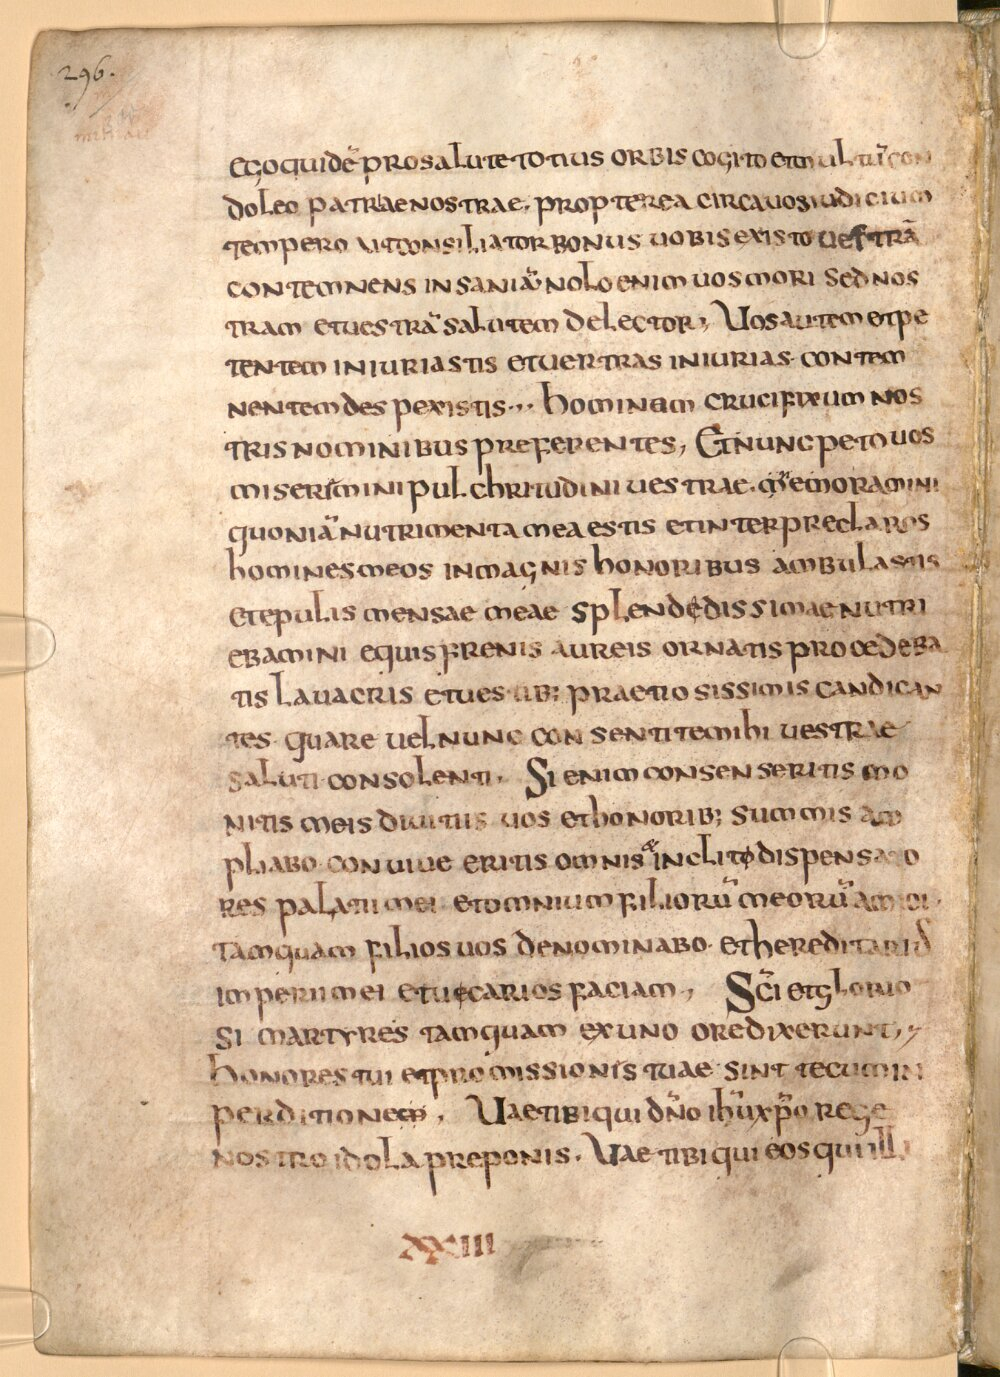 296.
egoquidē prosalute totius orbis cogito etmultū con
doleo patriae nostrae. propterea circauos iudicium
tempero utconsiliator bonus uobis existo uestrā
contemnens insaniā. nolo enim uos mori sed nos
tram etuestrā salutem delector, Uos autem etpe
tentem iniuriastis etuertras iniurias contem
nentem despexistis., hominam crucifixum nos
tris nominibus preferentes, Etnunc peto uos
miserimini pulchritudini uestrae. memoramini
quoniā nutrimenta mea estis etinter preclaros
homines meos inmagnis honoribus ambulastis
etepulis mensae meae splendedissimae nutri
ebamini equis frenis aureis ornatis procedeba
tis lauacris etuestib; praetiosissimis candican
tes quare uel nunc consentite mihi uestrae
saluti consolenti. Si enim consenseritis mo
nitis meis diuitiis uos ethonorib; summis am
pliabo conuiue eritis omnis inclito dispensato
res palatii mei etomnium filiorū meorū
tamquam filios uos denominabo ethereditarios
imperii mei etuicarios faciam, Sc̄i etglorio
si martyres tamquam exuno ore dixerunt,,
honores tui etpromissionis tuae sint tecum in
perditione. Uae tibi qui dn̄o ih̄u xp̄o rege
nostro idola preponis. Uae tibi qui eos qui illi
XXIII